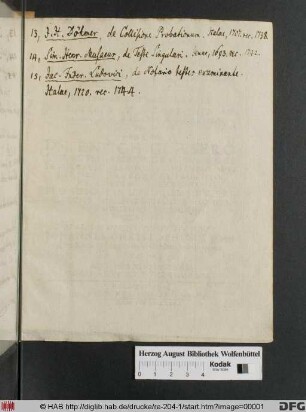 13, J. H. Böhmer, de Collisione Probationum. Halae, 17 rec. 1738.
14, Sim. Henr. Musaeus, de Teste Singulari. 1693. rec. 1742.
15, Jac. Frider. Ludovici, de Notario testes examinante.
Halae, 1720. rec. 1744.
Herzog August Bibliothek Wolfenbüttel
0 1 2 3 4
Kodak
© HAB http://diglib.hab.de/drucke/re-204-1/start.htm?image=00001
DFG